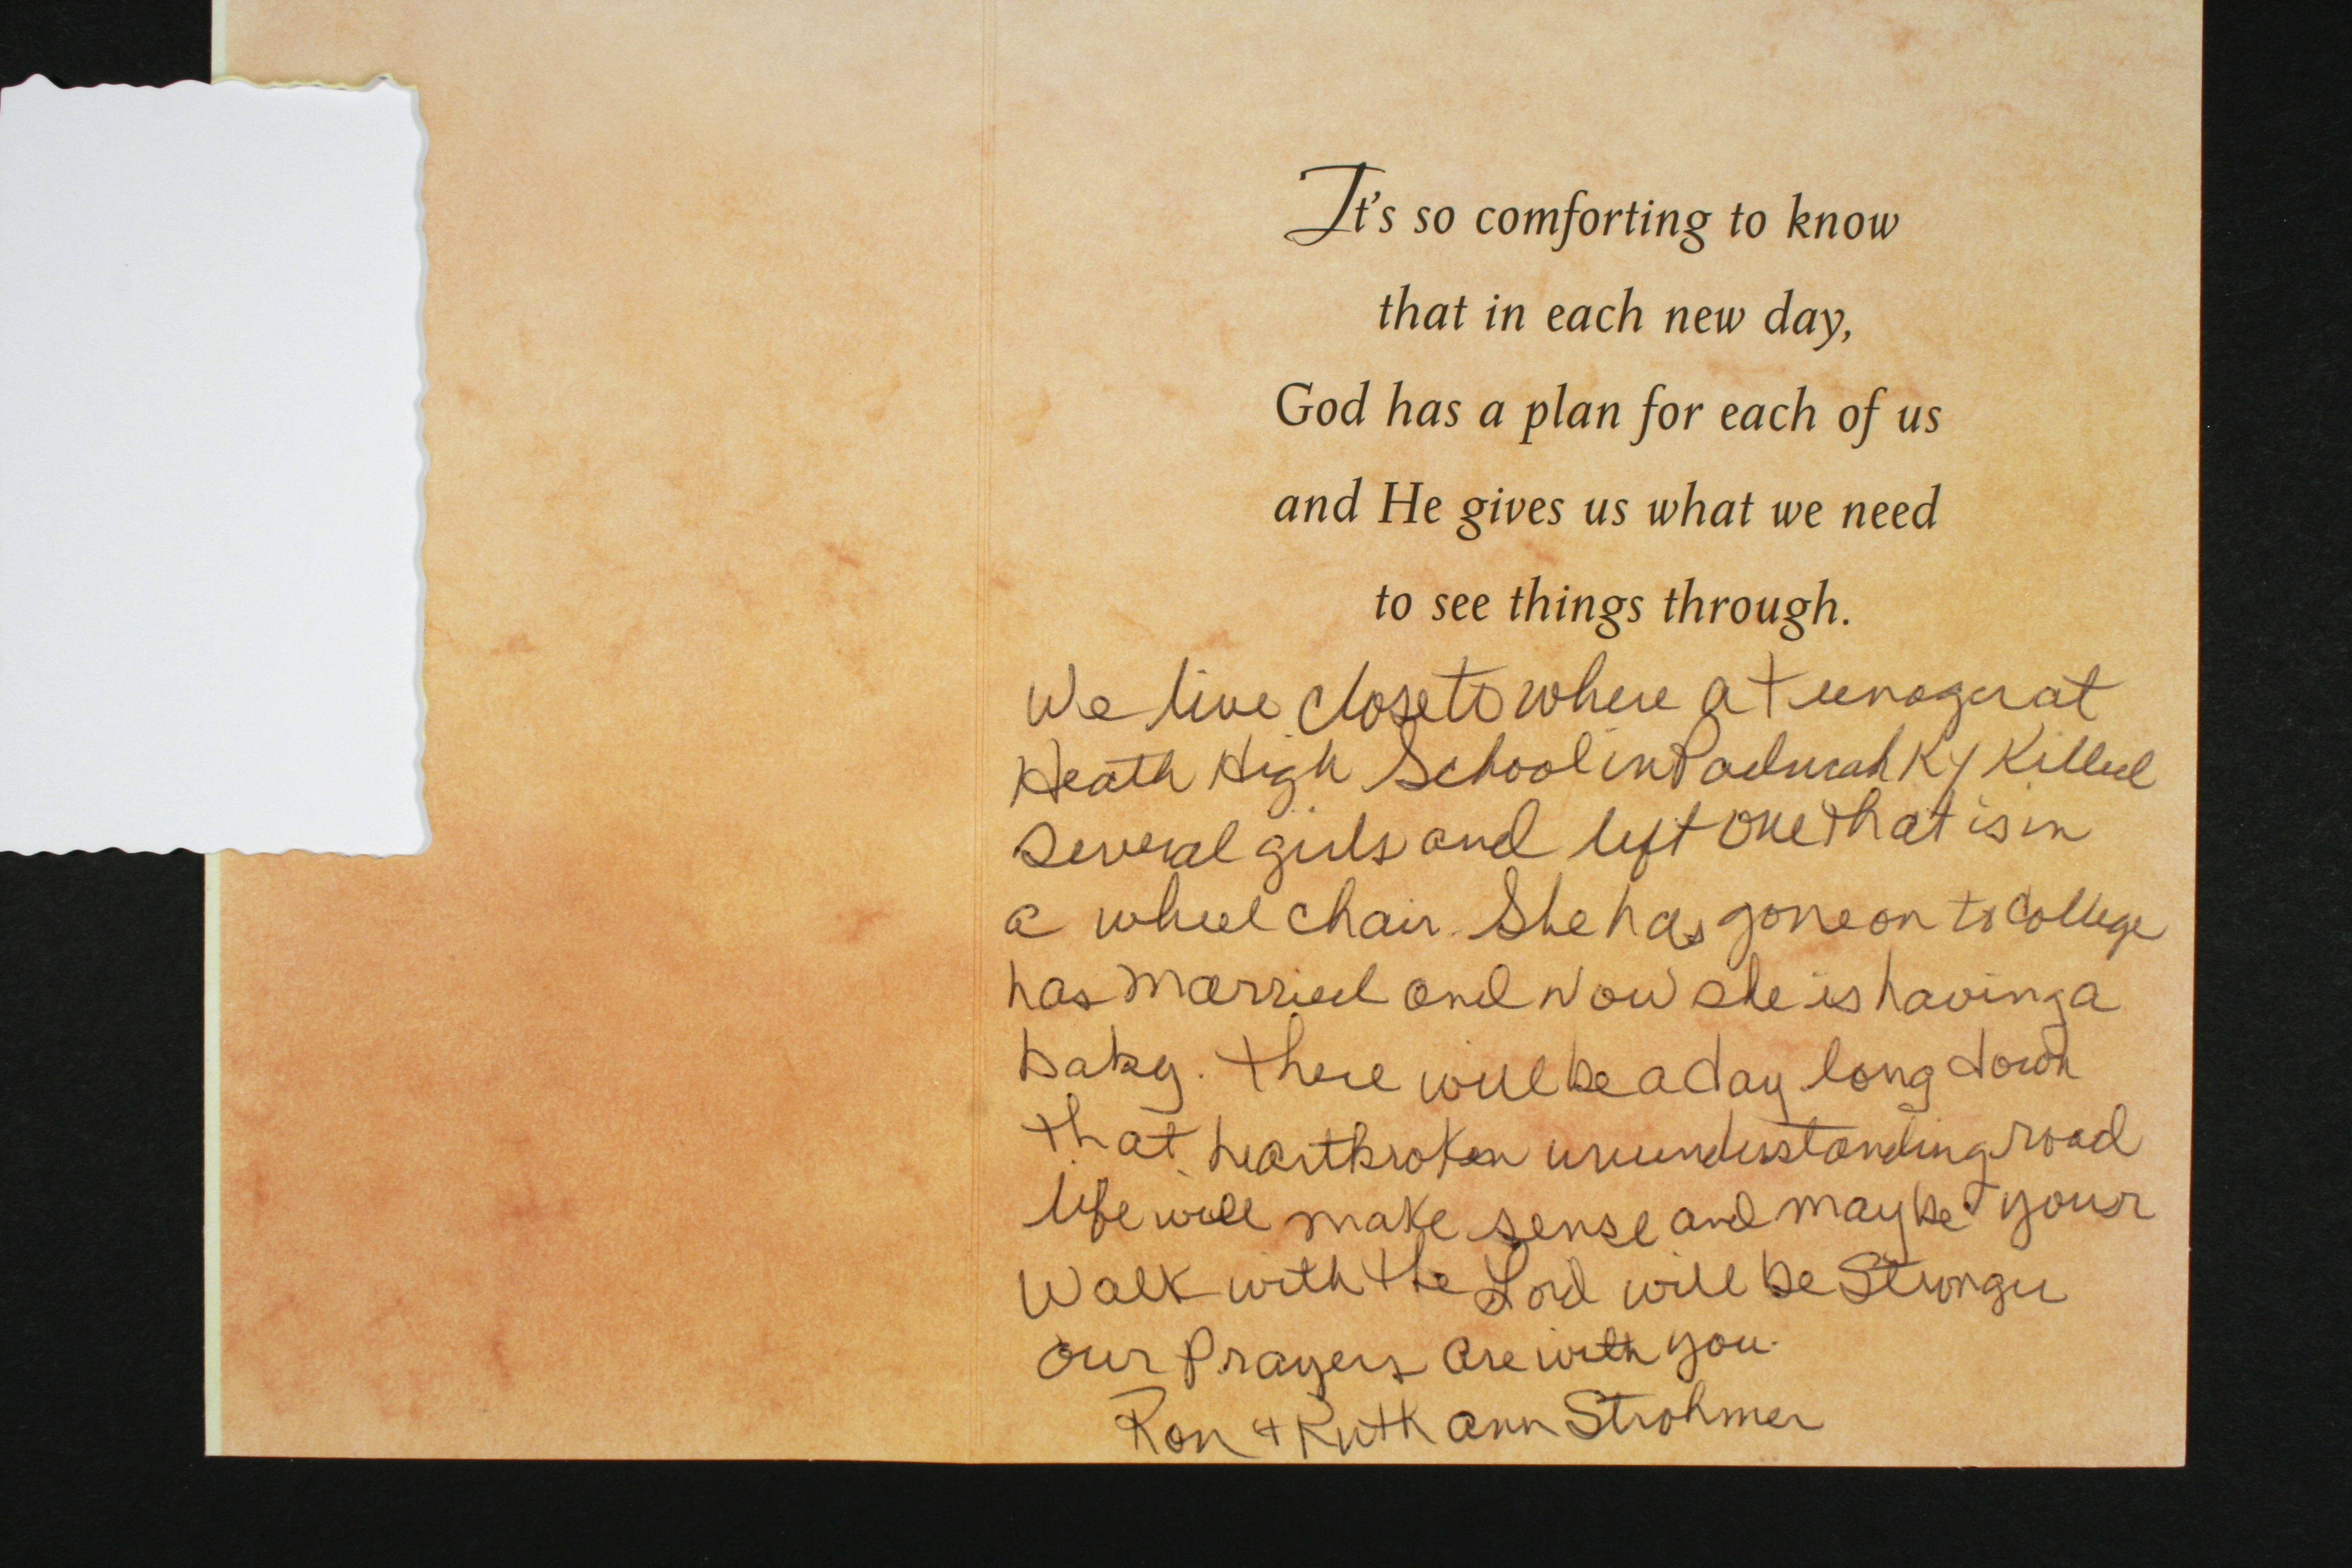 It's so comforting to know
that in each new day,
God has a plan for each of us
and He gives us what we need
to see things through.
We live close to where a teenager at
Heath High School in Paducah Ky Killed
several girls and left one that is in
a wheel chair. She has gone on to College
has married and now she is having a
baby. There will be a day long down
that heartbroken ununderstanding road
life will make sense and maybe your
Walk with the Lord will be Stronger
Our Prayers are with you.
Ron + Ruth Ann Strohmer